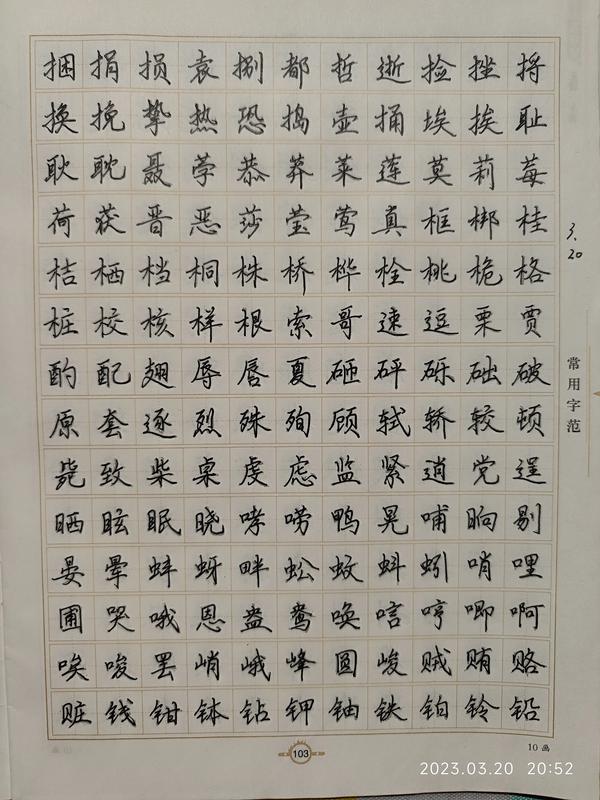 捆捐损袁捌都哲逝捡挫捋
换挽挚热恐捣壶捅埃挨耻
耿耽聂荸恭莽莱莲莫莉莓
荷获晋恶莎莹莺真框梆桂
桔栖档桐株桥桦栓桃桅格
桩校核样根索哥速逗栗贾
酌配翅辱唇夏砸砰砾础破
原套逐烈殊殉顾轼轿较顿
毙致柴桌虔虑监紧逍党逞
晒眩眠晓哮唠鸭晃哺晌剔
晏晕蚌蚜畔蚣蚊蚪蚓哨哩
圃哭哦恩盎鸯唤唁哼唧啊
唉唆罢峭峨峰圆峻贼贿赂
赃钱钳钵钻钾铀铁铂铃铅
3.20
常用字范
103
10画
2023.03.20 20:52